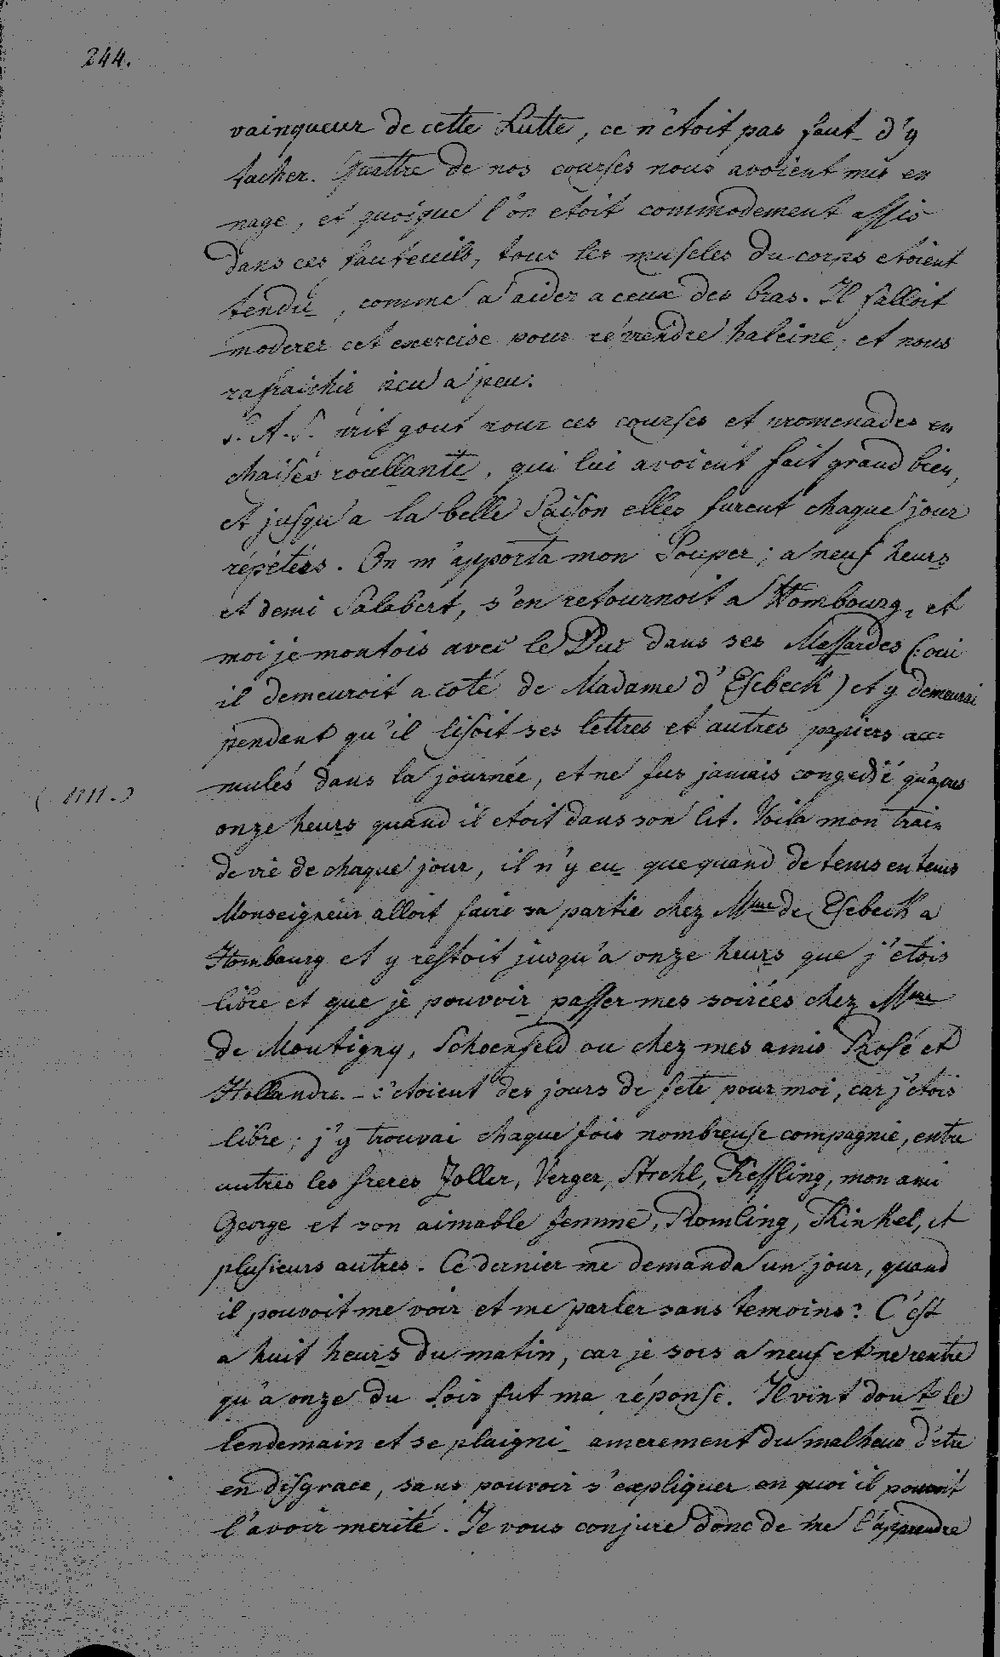 244.
vainqueur de cette Lutte, ce n'étoit pas faut d'y
tacher. Quattre de nos courses nous avoient mis en
nage, et quoique l'on etoit commodement assis
dans ces fauteuils, tous les muscles du corps etoient
tendu, comme a aider a ceux des bras. Il falloit
moderer cet exercise pour réprendre haleine, et nous
rafraichir peu a peu.
S. A. S. prit gout pour ces courses et promenades en
chaises roullante, qui lui avoient fait grand bien,
et jusqu'a la belle Saison elles furent chaque jour
répétées. On m'apporta mon Souper; a neuf heurs
et demi Salabert, s'en retournoit a Hombourg, et
moi je montois avec le Duc dans ses Massardes (: oui
il demeuroit a coté de Madame d'Esebeck) et y demeurai
pendent qu'il lisoit ses lettres et autres papiers acc=
mulés dans la journée, et ne fus jamais congedié qu'apres
(1111.)
onze heurs quand il etoit dans son lit. Voila mon train
de vie de chaque jour, il n'y eu que quand de tems en tems
Monseigneur alloit faire sa partie chez Mme de Esebeck a
Hombourg et y restoit jusqu'a onze heurs que j'etois
libre et que je pouvoir passer mes soirées chez Mme
de Moutigny, Schoenfeld ou chez mes amis Rosé et
Hollandre. - c'etoient des jours de fete pour moi, car j'etois
libre; j'y trouvai chaque fois nombreuse compagnie, entre
autres les freres Zoller, Verger, Strehl, Kessling, mon ami
George et son aimable femme, Romling, Kinkel, et
plusieurs autres. Ce dernier me demanda un jour, quand
il pouvoit me voir et me parler sans temoins? C'est
a huit heurs du matin, car je sors a neuf et ne rentre
qu'a onze du Soir fut ma réponse. Il vint dout le
lendemain et se plaigni amerement du malheur d'etre
en disgrace, sans pouvoir s'expliquer en quoi il pouvoit
l'avoir merité. Je vous conjure donc de me l'apprendre